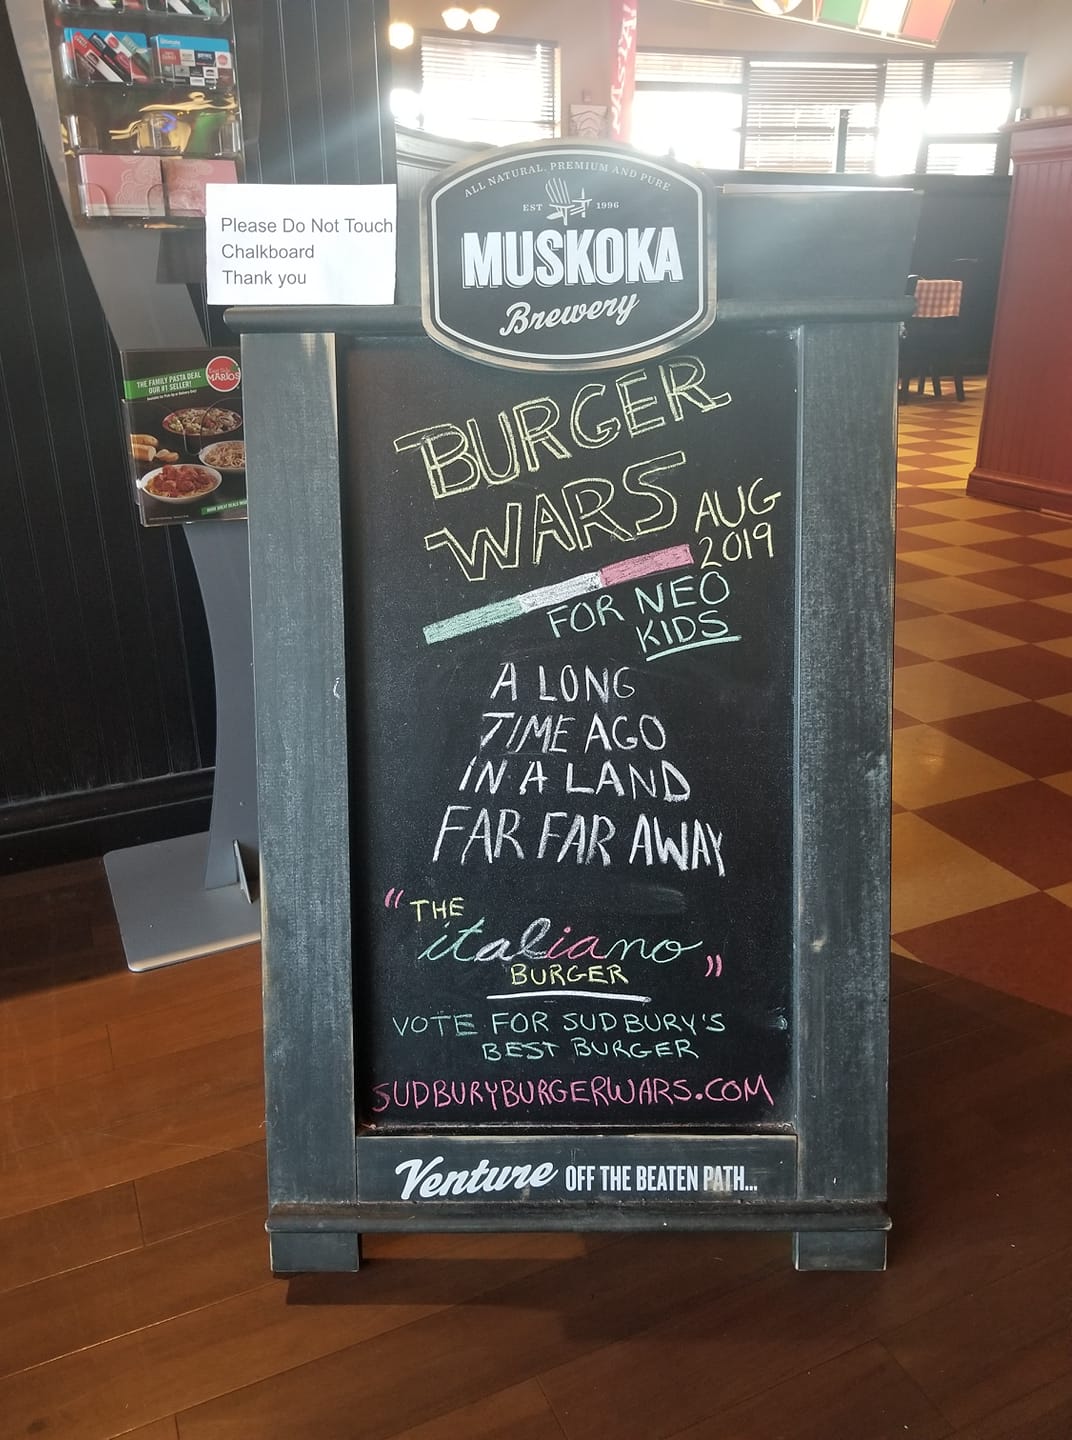 Please Do Not Touch
Chalkboard
Thank you
ALL NATURAL, PREMIUM AND PURE
EST 1996
MUSKOKA
Brewery
THE FAMILY PASTA DEAL
OUR #1 SELLER!
MARIOS
BURGER
WARS
AUG
2019
FOR NEO
KIDS
A LONG
TIME AGO
IN A LAND
FAR FAR AWAY
"THE
italiano
BURGER"
VOTE FOR SUDBURY'S
BEST BURGER
SUDBURYBURGERWARS.COM
Venture OFF THE BEATEN PATH...